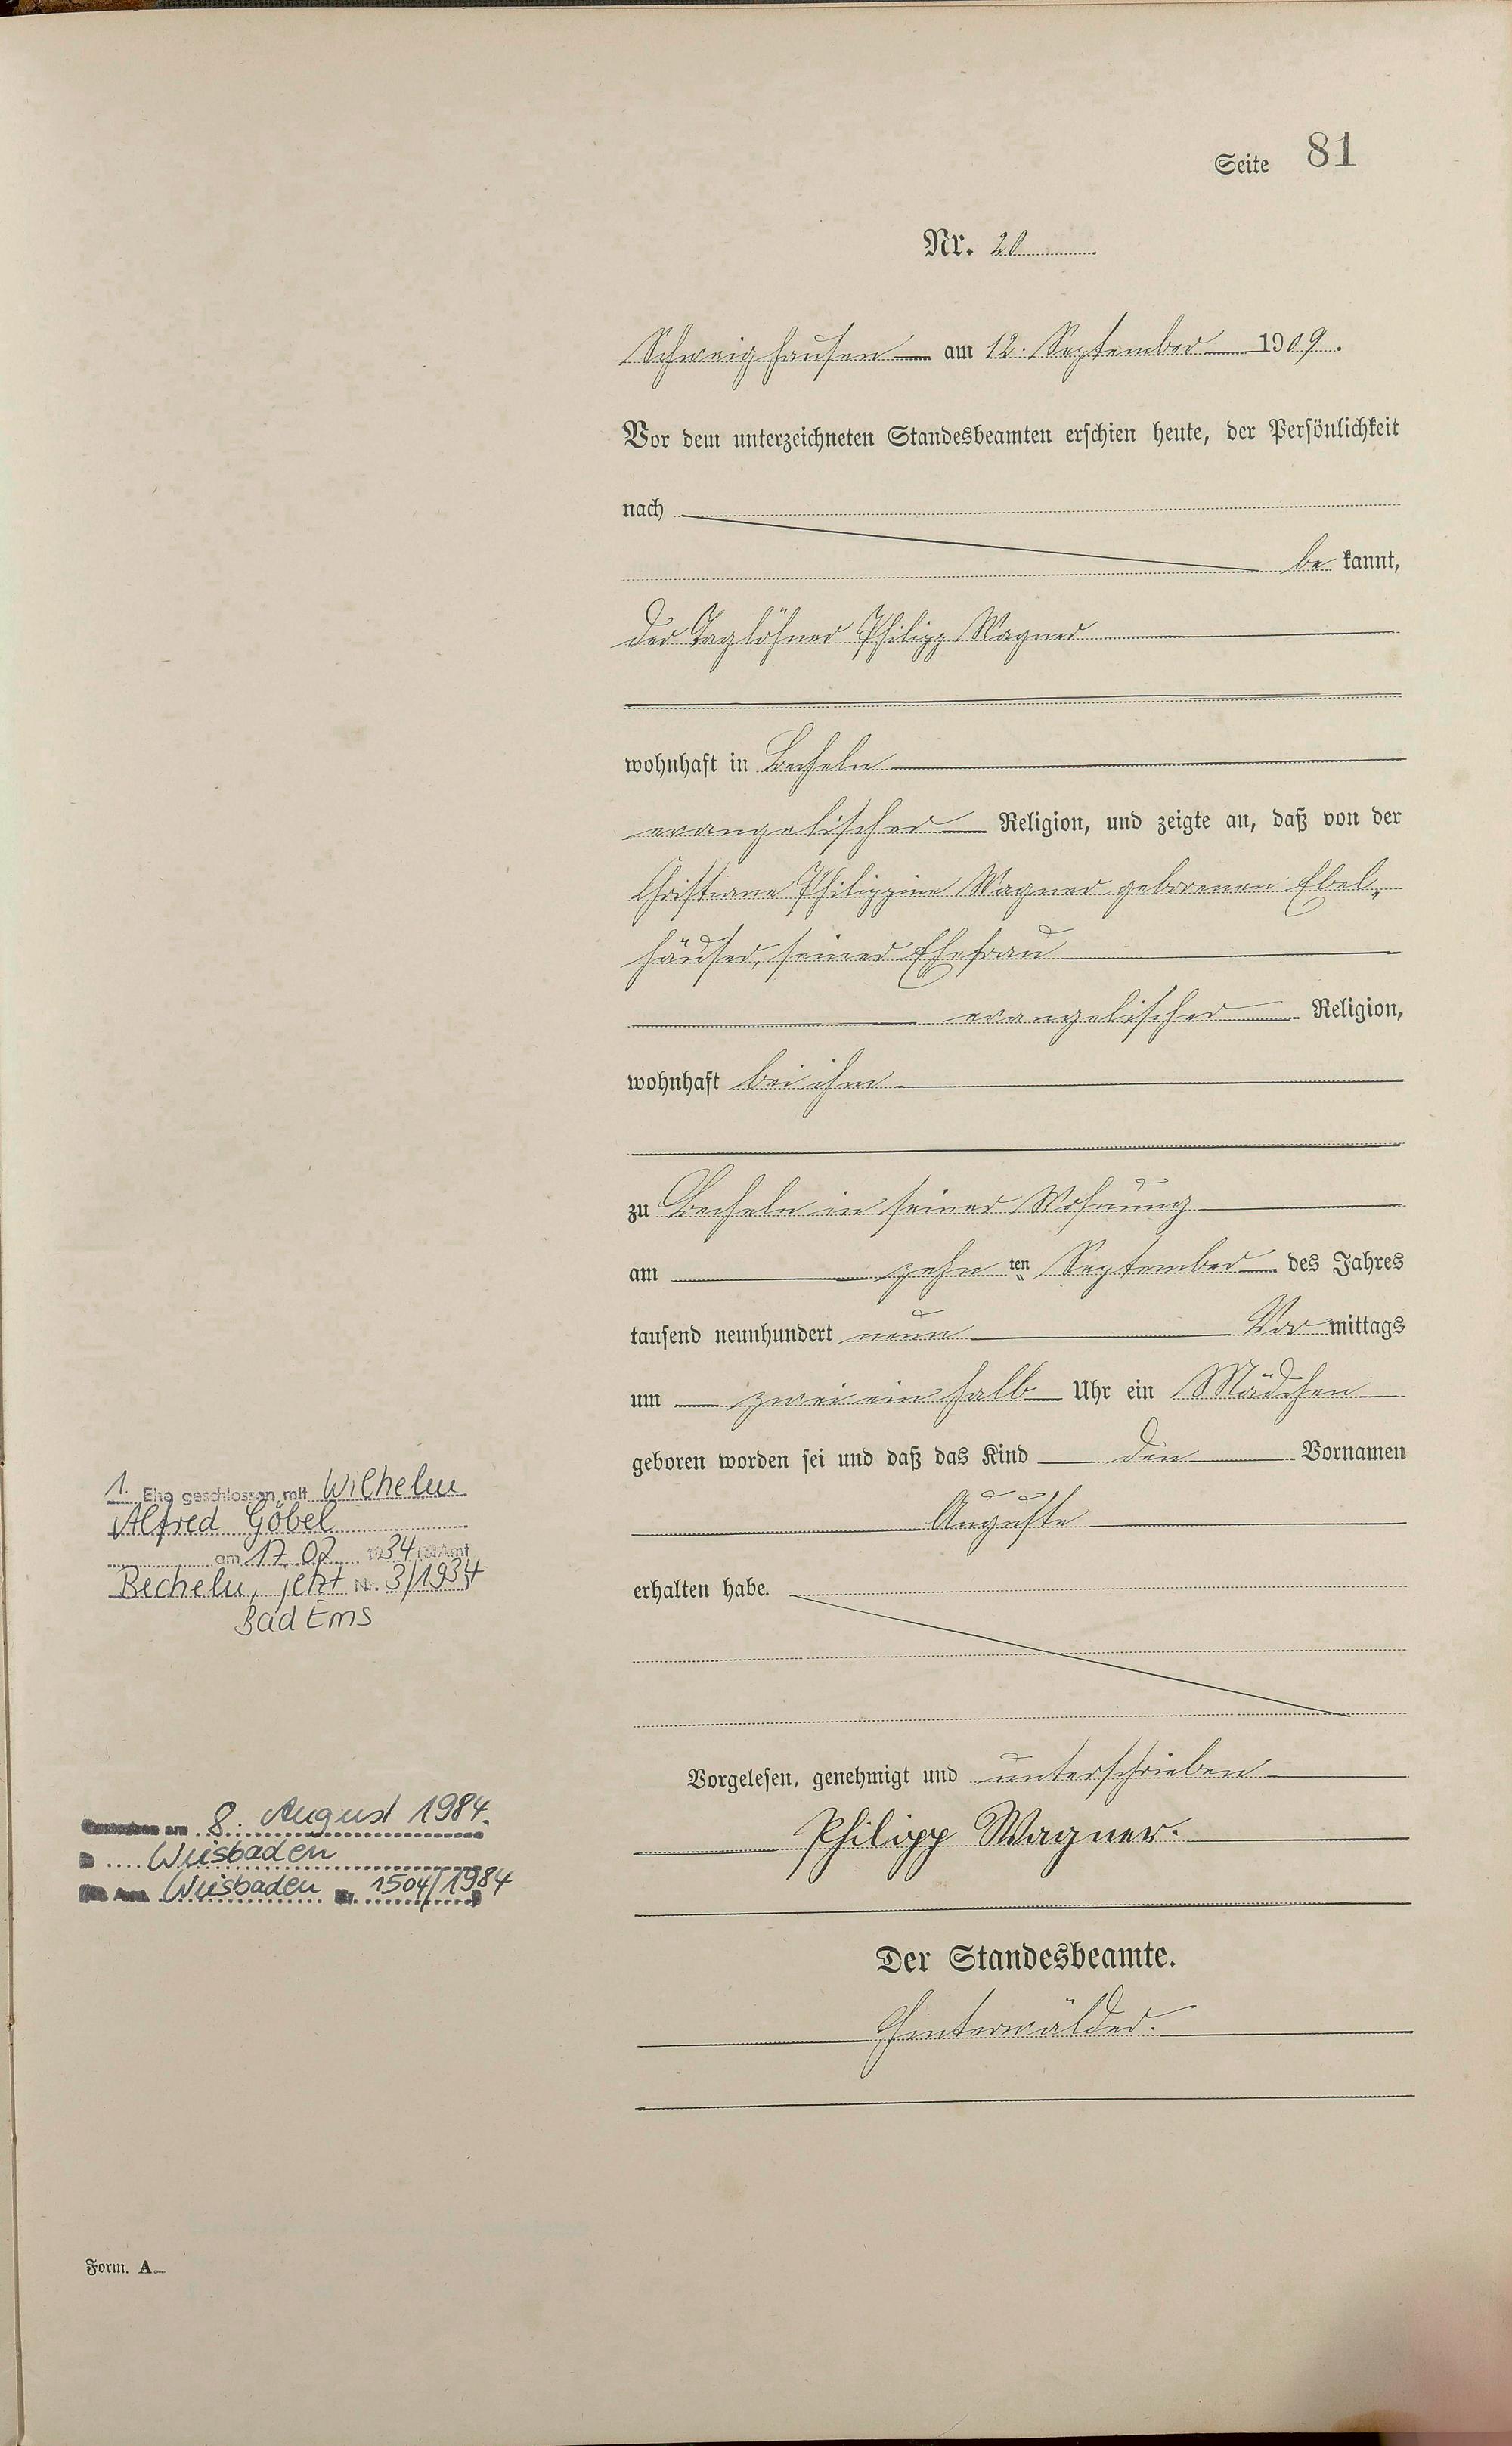 Seite 81
Nr. 20
Schweighausen am 12. September 1909.
Vor dem unterzeichneten Standesbeamten erschien heute, der Persönlichkeit
nach
be kannt,
der Taglöhner Philipp Wagner
wohnhaft in Becheln
evangelischer Religion, und zeigte an, daß von der
Christiane Philippine Wagner geborenen Ebel-
häuser, seiner Ehefrau
evangelischer Religion,
wohnhaft bei ihm
zu Becheln in seiner Wohnung
am zehn ten September des Jahres
tausend neunhundert neun Vor mittags
um zwei ein halb Uhr ein Mädchen
geboren worden sei und daß das Kind den Vornamen
Auguste
erhalten habe.
Vorgelesen, genehmigt und unterschrieben
Philipp Wagner.
Der Standesbeamte.
Hinterwälder.
1. Ehe geschlossen mit Wilhelm
Alfred Göbel
am 17.02. 1934 (StAmt
Becheln, jetzt Nr. 3/1934
Bad Ems
am 8. August 1984.
Wiesbaden
Wiesbaden Nr. 1504/1984
Form. A.